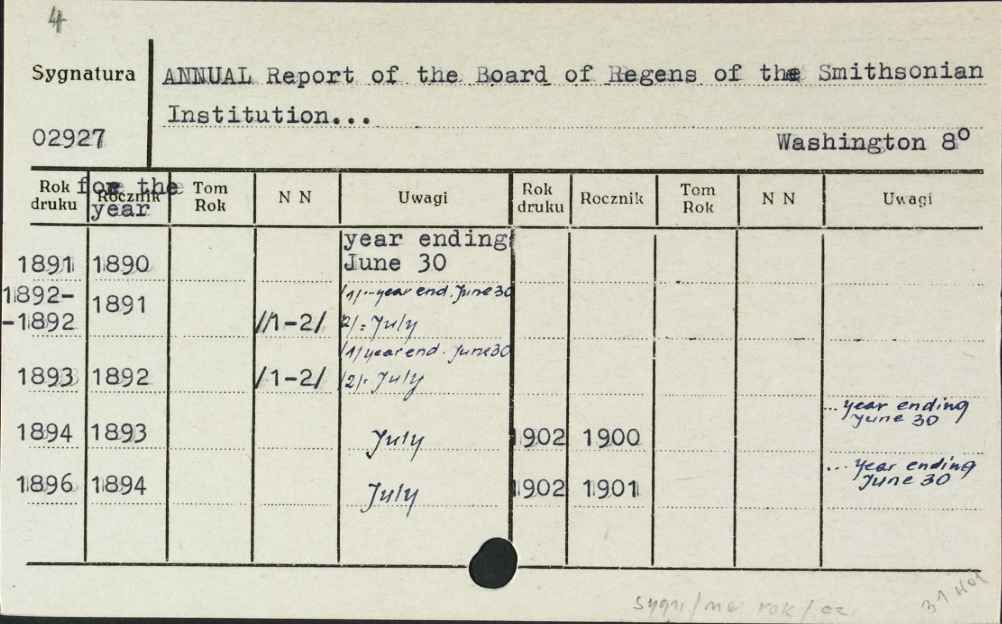 4
Sygnatura
ANNUAL Report of the Board of Regens of the Smithsonian
Institution...
02927
Washington 8º
for the
year
Rok druku Rocznik Tom Rok N N Uwagi Rok druku Rocznik Tom Rok N N Uwagi
year ending
1891 1890 June 30
1892- 1891 /1/...year end. June 30
-1892 /1-2/ 2/: July
/1/ year end. June 30
1893 1892 /1-2/ /2/: July
... year ending
June 30
1894 1893 July 1902 1900
... year ending
June 30
1896 1894 July 1902 1901